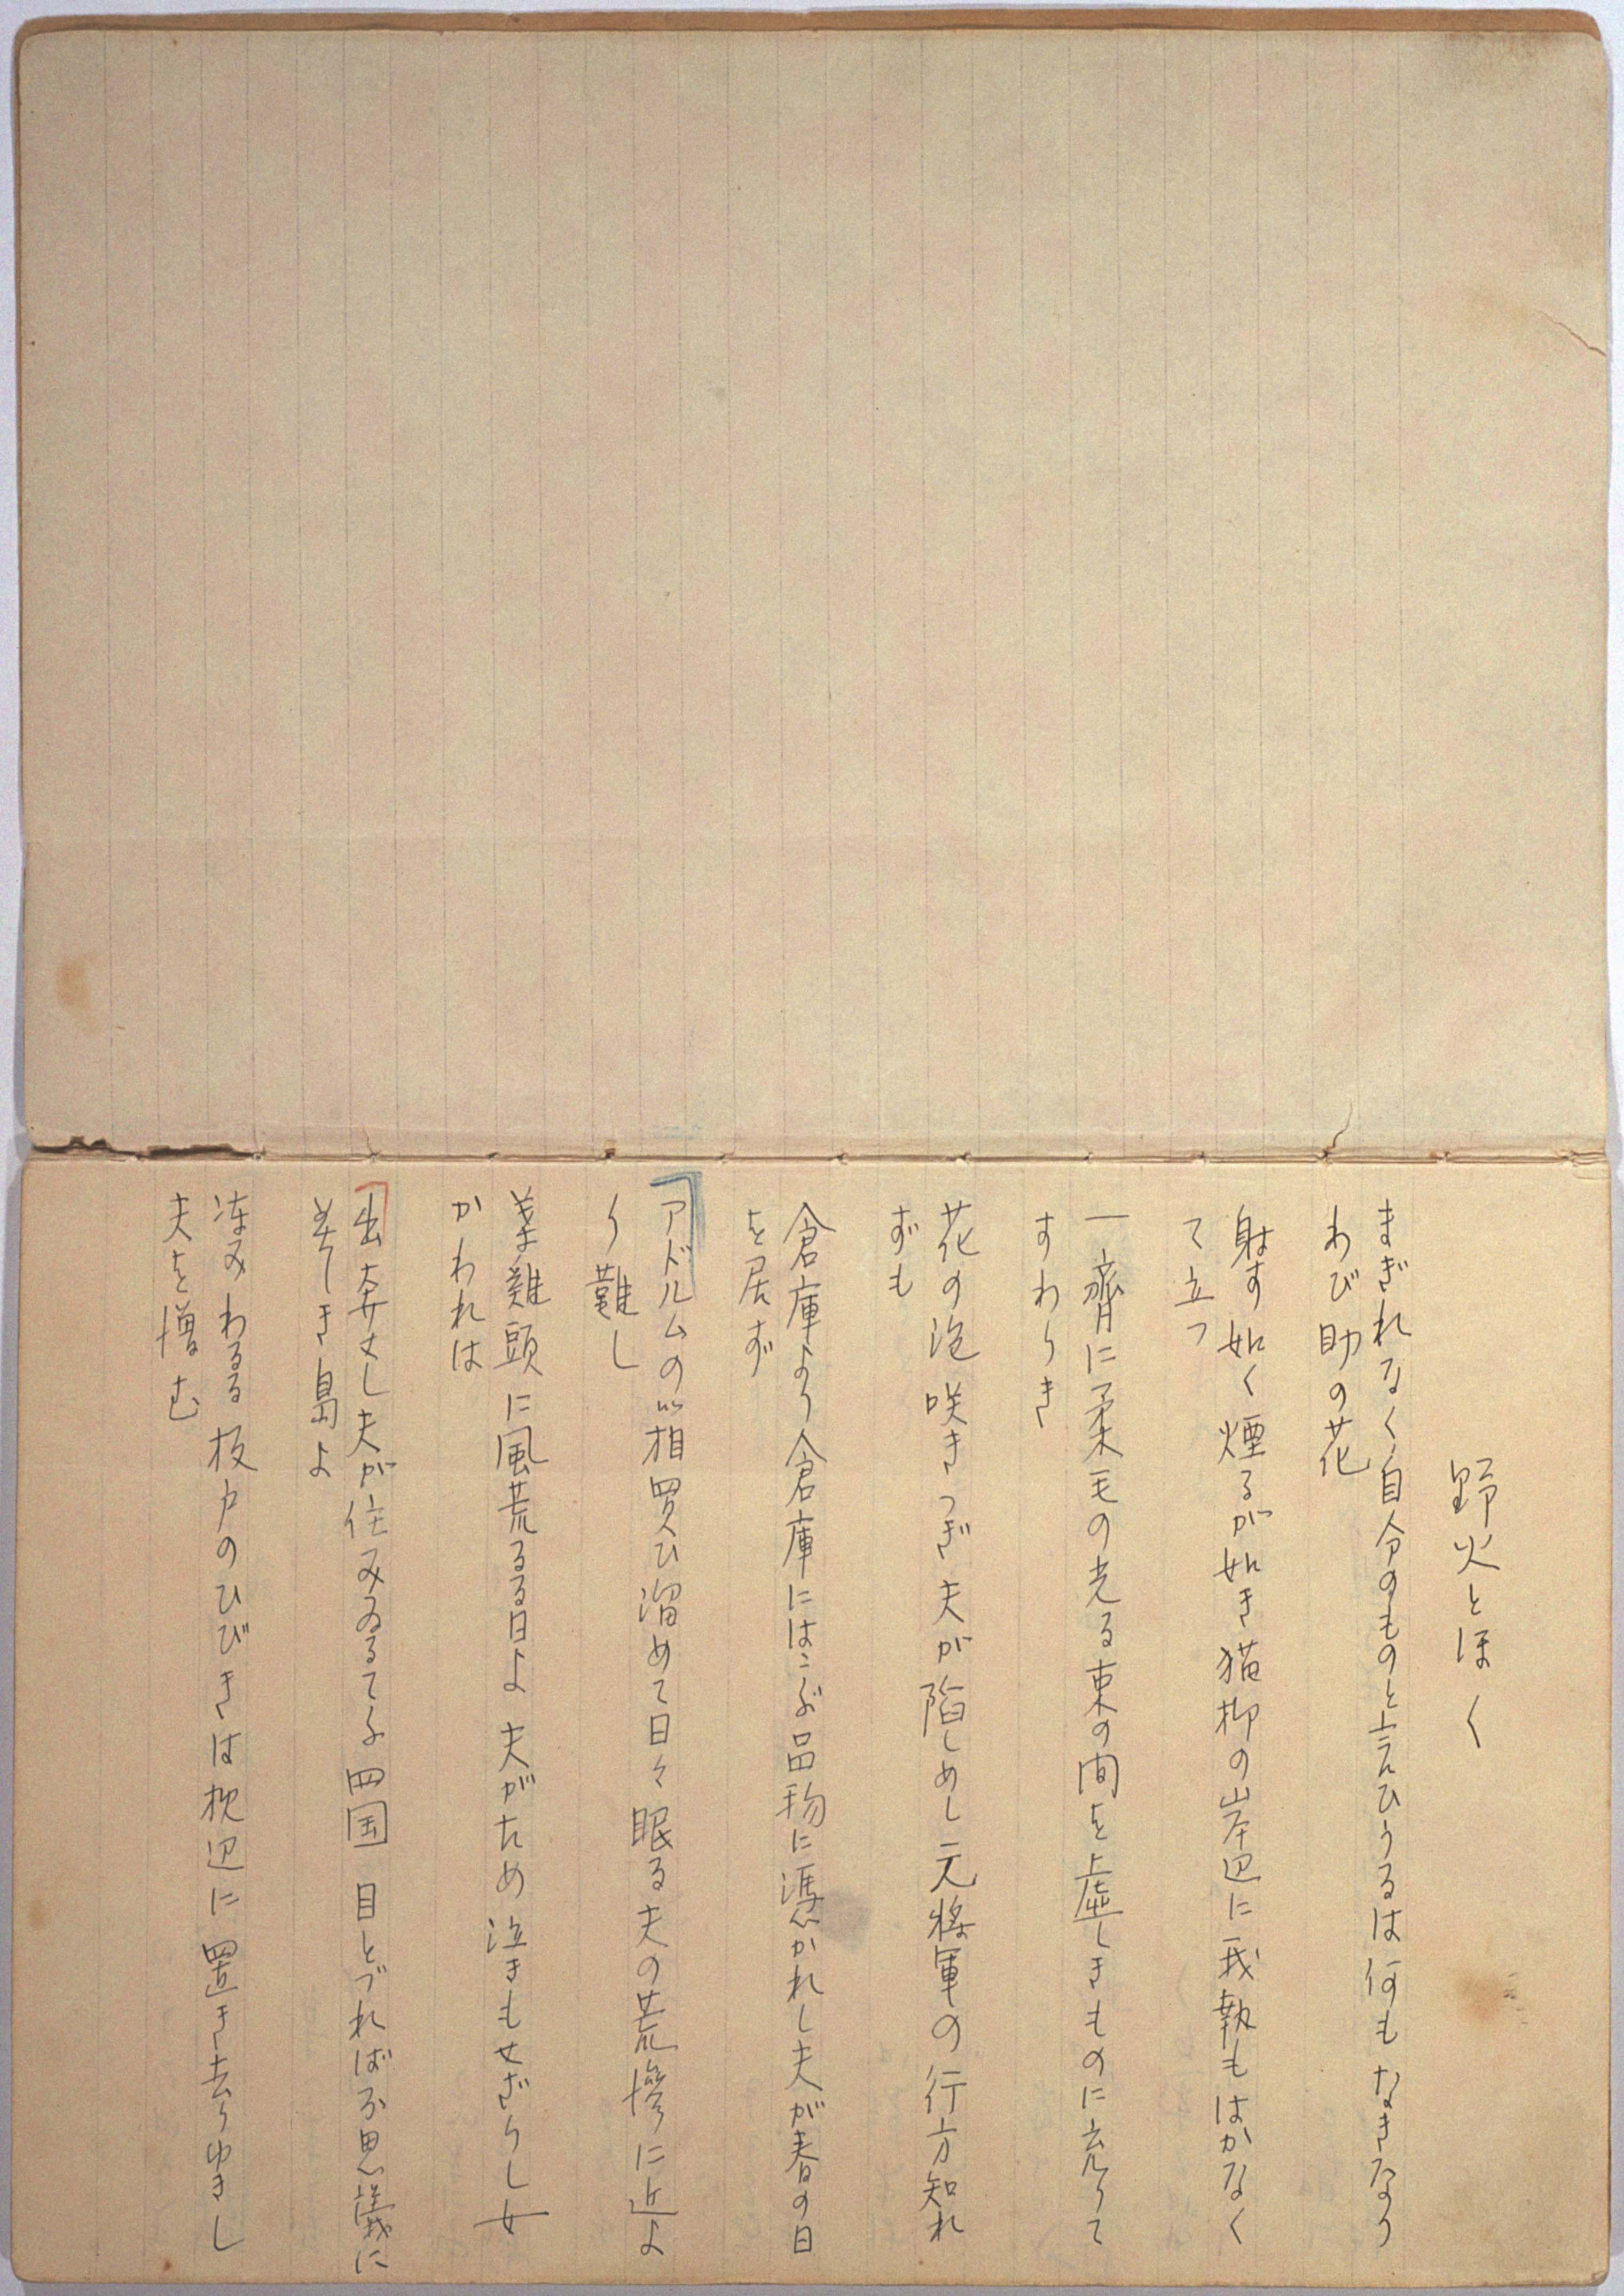 野火とほく
まぎれなく自分のものと言ひうるは何もなきなり
わび助の花
射す如く煙るが如き猫柳の岸辺に我執もはかなく
て立つ
一齊に柔毛の光る束の間を虚しきものに充ちて
すわりき
花の泡咲きつぎ夫が陥しめし元將軍の行方知れ
ずも
倉庫より倉庫にはこぶ品物に憑かれし夫が春の日
を居ず
アドルムの箱買ひ溜めて日々眠る夫の荒惨に近よ
り難し
葉雞頭に風荒るる日よ夫がため泣きもせざりし女
かわれは
出奔せし夫が住みゐるてふ四国目とづれば不思議に
美しき島よ
凍みわるる板戸のひびきは枕辺に置き去りゆきし
夫を憎む